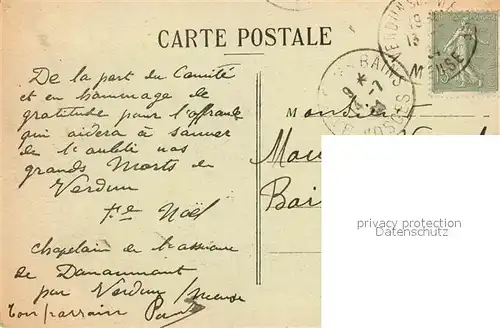 CARTE POSTALE
De la part du Comité
et en hommage de
gratitude pour l'offrande
qui aidera à sauver
de l'oubli nos
grands Morts de
Verdun
Noël
chapelain de
de Douaumont
par Verdun / Meuse
Ton parrain
Monsieur
Bai
BAINS
VOSGES
VERDUN
MEUSE
privacy protection
Datenschutz